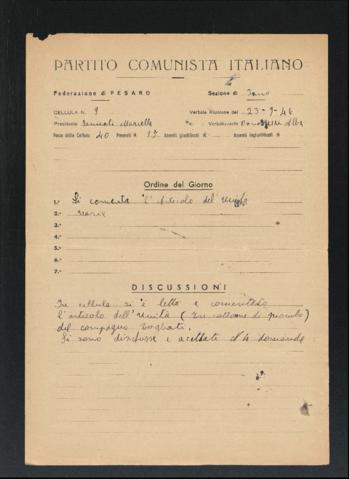 PARTITO COMUNISTA ITALIANO
Federazione di PESARO Sezione di Fano
CELLULA N. 9 Verbale Riunione del 23-9-46
Presidente Marcella Verbalizzante Alba
Forza della Cellula 40 Presenti N. 17 Assenti giustificati N. Assenti ingiustificati N.
Ordine del Giorno
1.° Si comenta l'articolo dell'
2.° Varie
3.°
4.°
5.°
6.°
7.°
DISCUSSIONI
In cellula si è letto e comentato
l'articolo dell'Unità (
del compagno Togliatti.
Si sono discusse e accettate N 4 domande